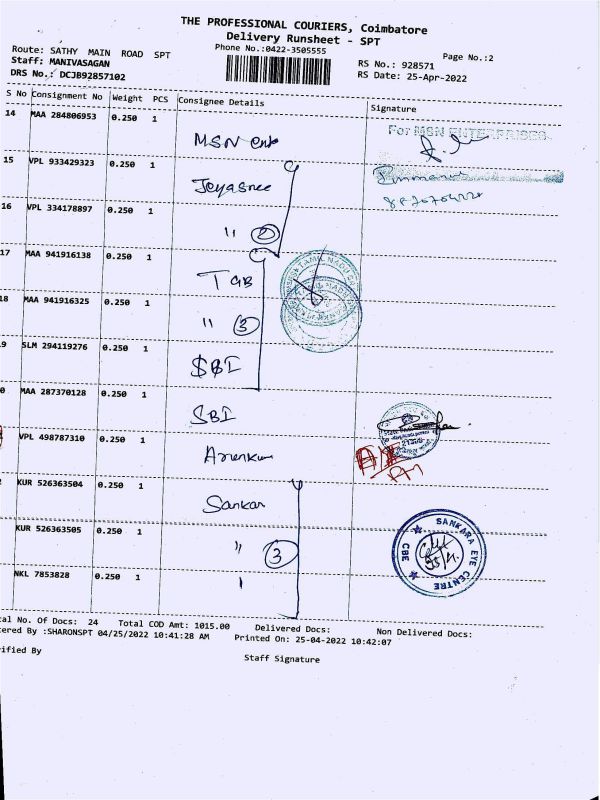 THE PROFESSIONAL COURIERS, Coimbatore
Delivery Runsheet - SPT
Phone No.:0422-3505555
Page No.:2
Route: SATHY MAIN ROAD SPT
Staff: MANIVASAGAN
DRS No.: DCJB92857102
RS No.: 928571
RS Date: 25-Apr-2022
S No Consignment No Weight PCS Consignee Details Signature
14 MAA 284806953 0.250 1 MSN ent For MSN ENTERPRISES
15 VPL 933429323 0.250 1 Jeyasree
16 VPL 334178897 0.250 1 " 2
17 MAA 941916138 0.250 1 TGB TAMIL NADU
18 MAA 941916325 0.250 1 " 3
9 SLM 294119276 0.250 1 SBI
0 MAA 287370128 0.250 1 SBI
VPL 498787310 0.250 1 Arunkum
KUR 526363504 0.250 1 Sankar
KUR 526363505 0.250 1 " 3 SANKARA EYE CENTRE CBE
NKL 7853828 0.250 1 "
al No. Of Docs: 24 Total COD Amt: 1015.00 Delivered Docs: Non Delivered Docs:
ered By :SHARONSPT 04/25/2022 10:41:28 AM Printed On: 25-04-2022 10:42:07
ified By
Staff Signature